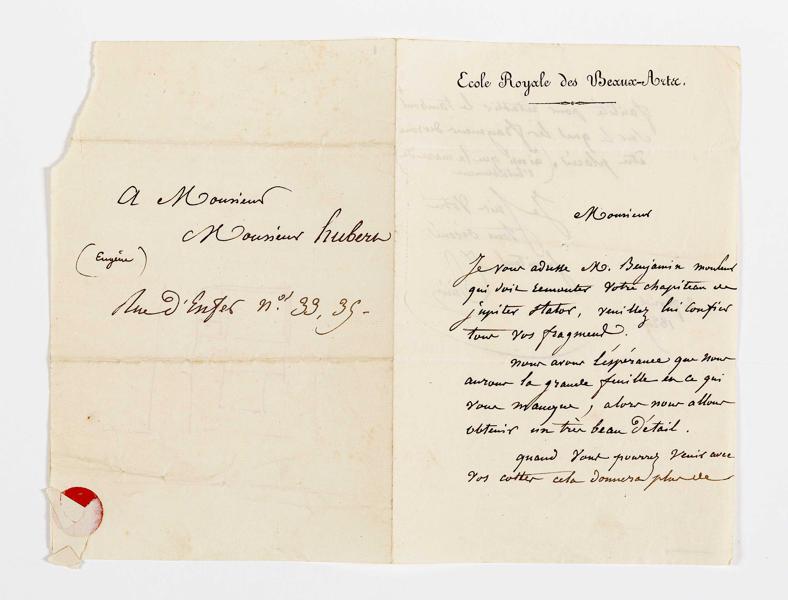 A Monsieur
Monsieur hubert
(Eugène)
Rue d'Enfer n.os 33, 35-
Ecole Royale des Beaux-Arts.
Monsieur
Je vous adresse M. Benjamin mouleur
qui doit remonter votre chapiteau de
jupiter stator, veuillez lui confier
tous vos fragmens.
nous avons l'espérance que nous
aurons la grande feuille en ce qui
vous manque, alors nous allons
obtenir un très beau détail.
quand vous pourrez venir avec
vos cottes cela donnera plus de